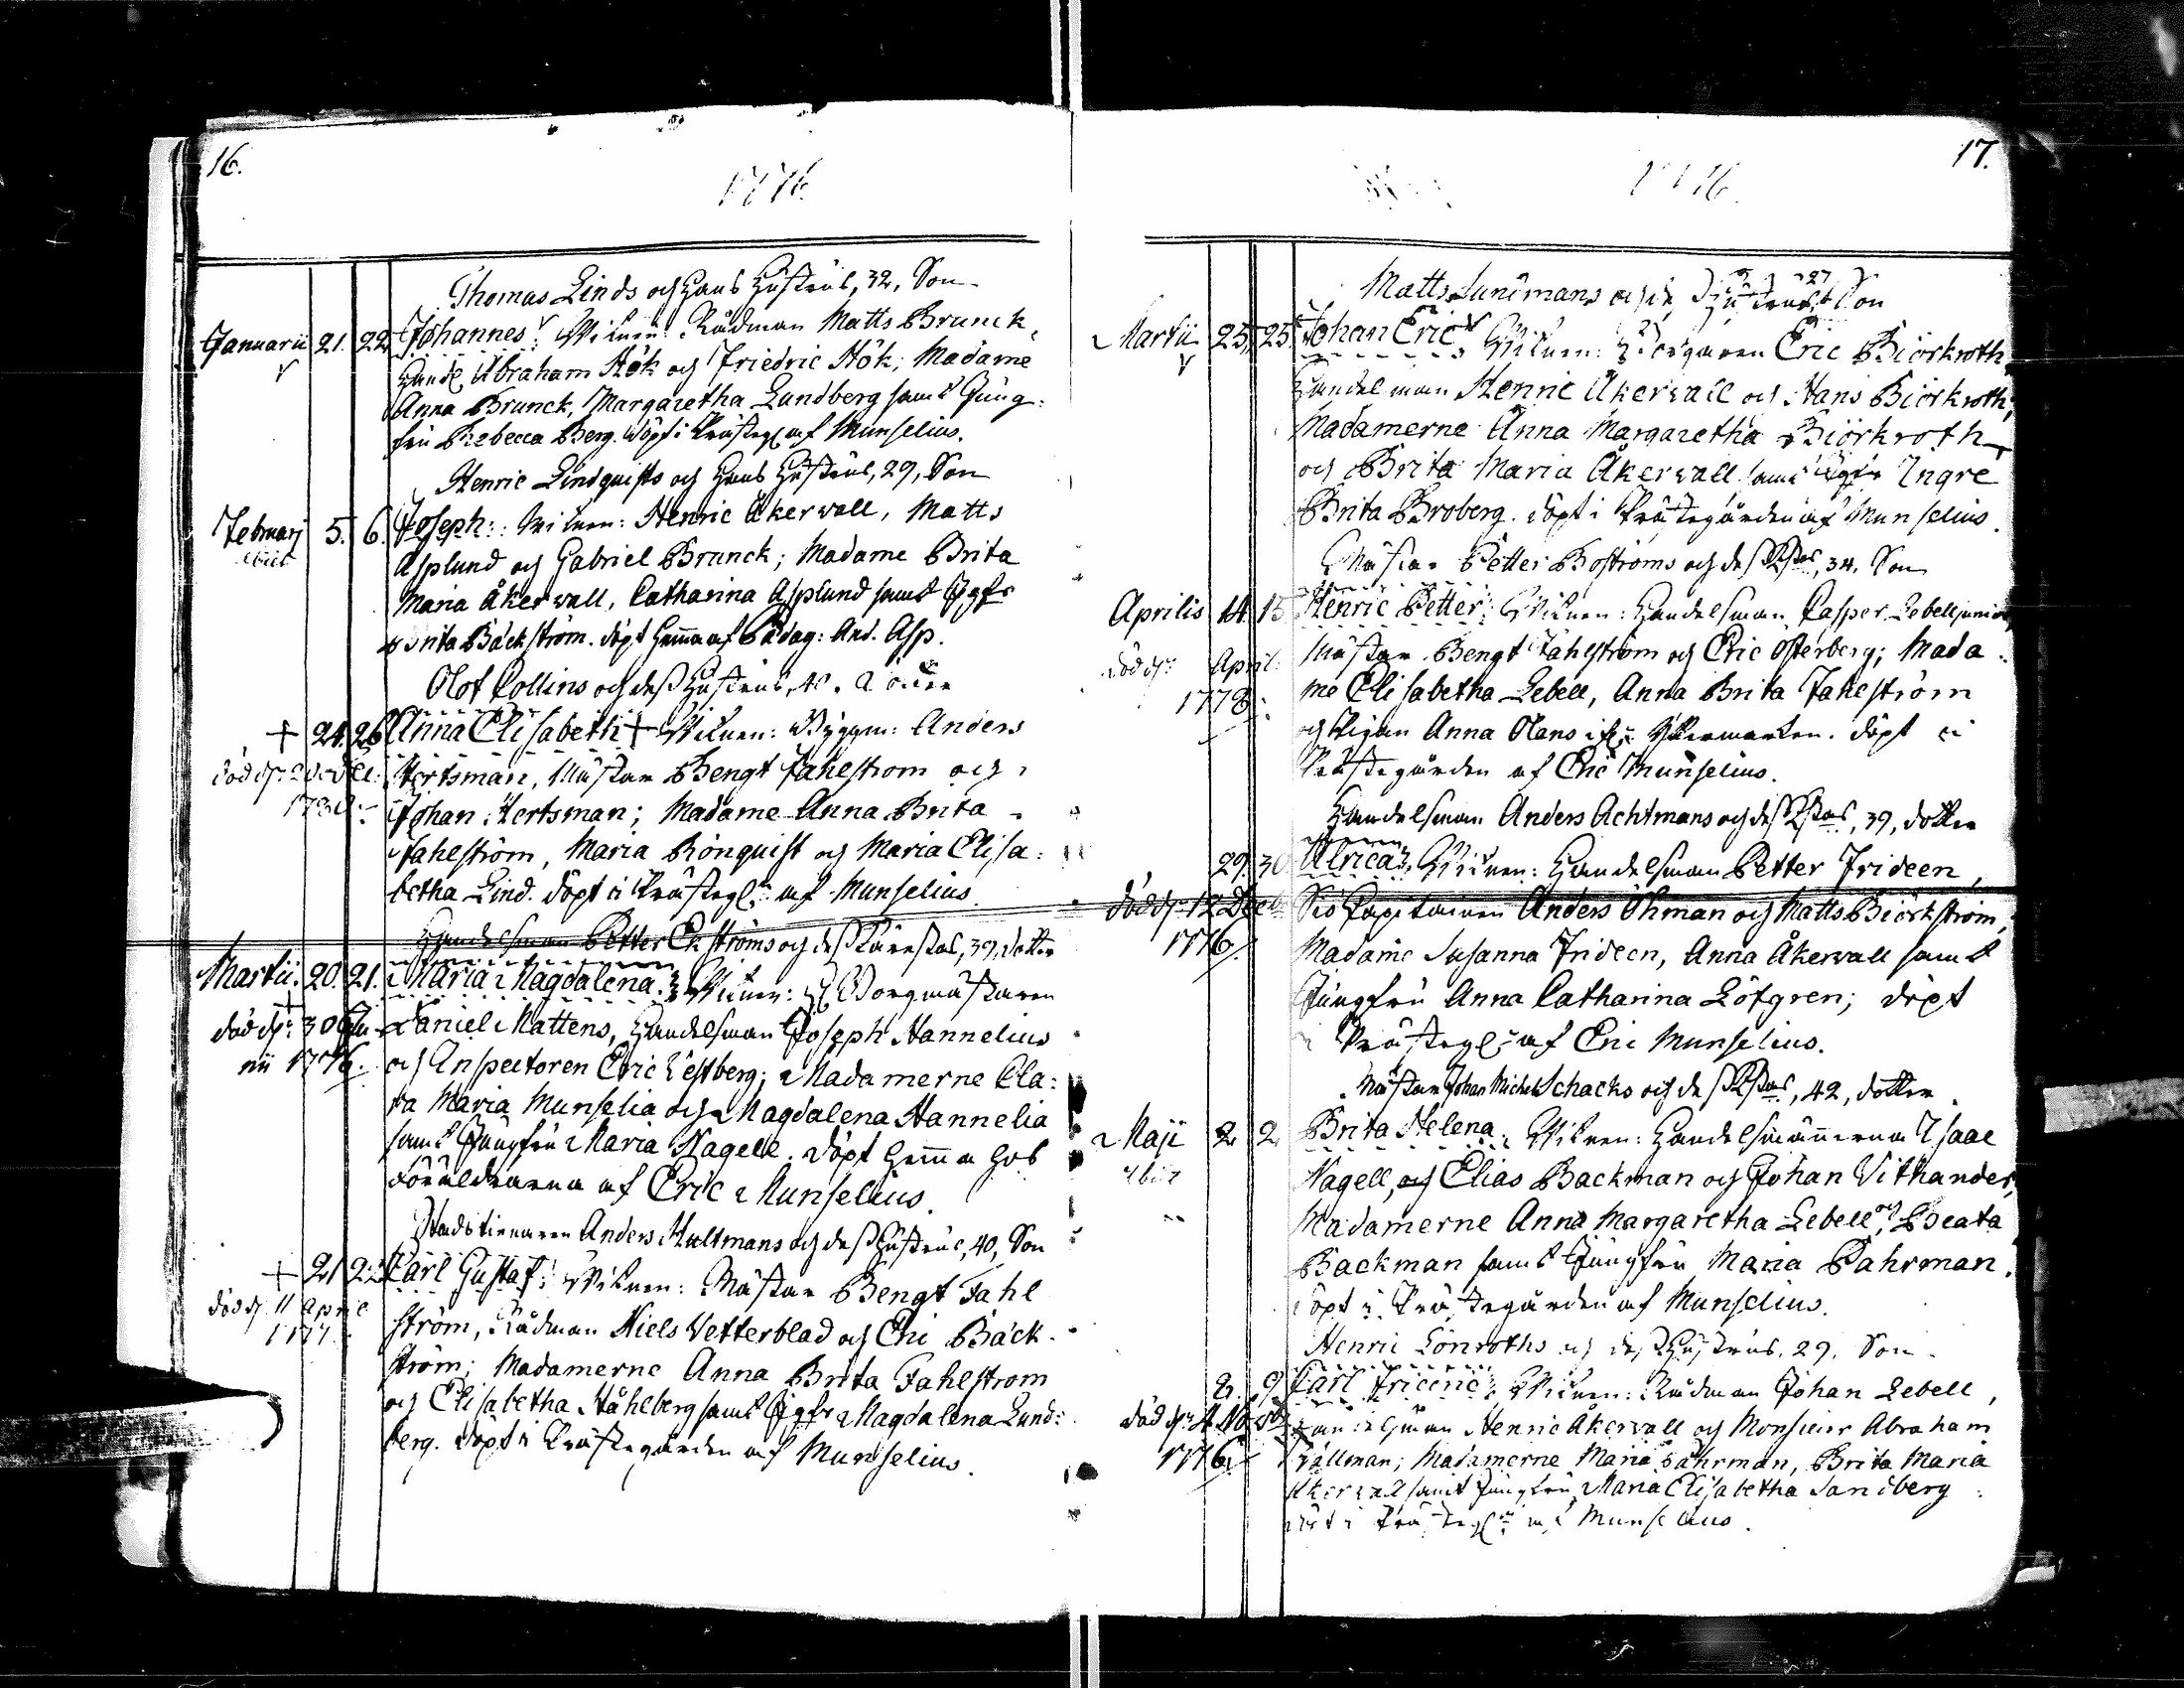 16.
1776.
Thomas Linds och Hans Hustrus, 32, Son
Januarii 21. 22. Johannes: Witnen: Rådman Matts Brunck,
Handl. Abraham Hök och Friedric Hök; Madame
Anna Brunck, Margaretha Lundberg samt Jung-
fru Rebecca Berg. döpt i Prästeg: af Munselius.
Henric Lindquists och Hans Hustrus, 29, Son
Februarj 5. 6. Joseph: Witnen: Henric Åkerwall, Matts
Asplund och Gabriel Brunck; Madame Brita
Maria Åkerwall, Catharina Asplund samt Jgfr
Brita Bäckström. döpt hema af Pädag: And. Asp.
Olof Collins och dess Hustrus, 40. Dotter
+ 24. 26 Anna Elisabeth + Witnen: Byggm: Anders
död d: 2
Hertsman, Mästar Bengt Fahlstrom och
Johan Hertsman; Madame Anna Brita
Fahlström, Maria Rönquist och Maria Elisa:
betha Lind. döpt i Prästeg: af Munselius.
Handelsman Petter Ekströms och dess Kärastas, 39, dotter
Martii. 20. 21. Maria Magdalena. Witnen: H. Borgmästaren
+
död d: 30 Ju- Daniel Mattens, Handelsman Joseph Hannelius
nii 1776. och Inspectoren Eric Vestberg; Madamerne Cla:
ra Maria Munselia och Magdalena Hannelia
samt Jungfru Maria Nagell. döpt hemma hos
Föräldrarna af Eric Munselius.
Stadstienaren Anders Hultmans och dess Hustrus, 40, Son
+ 21 22 Carl Gustaf: Witnen: Mästar Bengt Fahl
död d. 11 April
177
ström, Rådman Niels Vetterblad och Eric Bäck-
ström; Madamerne Anna Brita Fahlstrom
och Elisabetha Ståhlberg samt Jgfr Magdalena Lund:
berg. döpt i Prästegården af Munselius.
17.
1776.
Matts Sundmans och Hustrus 27 Son
Martii 25. 25. Johan Eric. Witnen: Borgaren Eric Biörkroth,
Handelsman Henric Åkerwall och Hans Biörkroth;
Madamerne Anna Margaretha Biörkroth
och Brita Maria Åkerwall samt Jgfr
Brita Broberg. döpt i Prästegården af Munselius.
Mästar Petter Boströms och dess K:stas, 34. Son
Aprilis 14. 15 Henric Petter: Witnen: Handelsman Casper Lebell junior,
död d: April
1778.
Mästar Bengt Fahlström och Eric Osterberg; Mada-
me Elisabetha Lebell, Anna Brita Fahlström
och Pigan Anna Olans döpt i
Prästegården af Eric Munselius.
Handelsman Anders Achtmans och dess K:stas, 39, dotter
29. 30 Ulrica: Witnen: Handelsman Petter Frideen,
död d: 12 Decb
1776.
Siö Capitainen Anders Öhman och Matts Biörkström,
Madame Susanna Frideen, Anna Åkerwall samt
Jungfru Anna Catharina Löfgren; döpt
i Prästeg: af Eric Munselius.
Mästar Johan Michel Schacks och dess K:stas, 42, dotter.
Maji 2. 2. Brita Helena. Witnen: Handelsmännerna Isaac
Nagell, och Elias Backman och Johan Vithander,
Madamerne Anna Margaretha Lebell och Beata
Backman samt Jungfru Maria Pahrman.
döpt i Prästegården af Munselius.
Henric Lönroths och dess Hustrus, 29. Son.
9. Carl Fridric: Witnen: Rådman Johan Lebell,
död d: 4 Novb
1776.
Handelsman Henric Åkerwall och Monsieur Abraham
Madamerne Maria Pahrman, Brita Maria
Åkerwall samt Jungfru Maria Elisabetha Sandberg.
döpt i Prästeg: af Munselius.